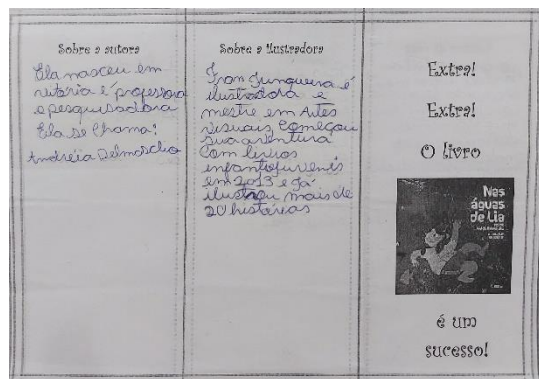 Sobre a autora
Ela nasceu em
vitória é professora
e pesquisadora
Ela se Chama:
Andréia Delmaschio
Sobre a Ilustradora
Fran Junqueira é
ilustradora e
mestre em Artes
visuais. Começou
sua aventura
com livros
infantojuvenis
em 2013 e já
ilustrou mais de
20 histórias
Extra!
Extra!
O livro
Nas
águas
de Lia
é um
sucesso!